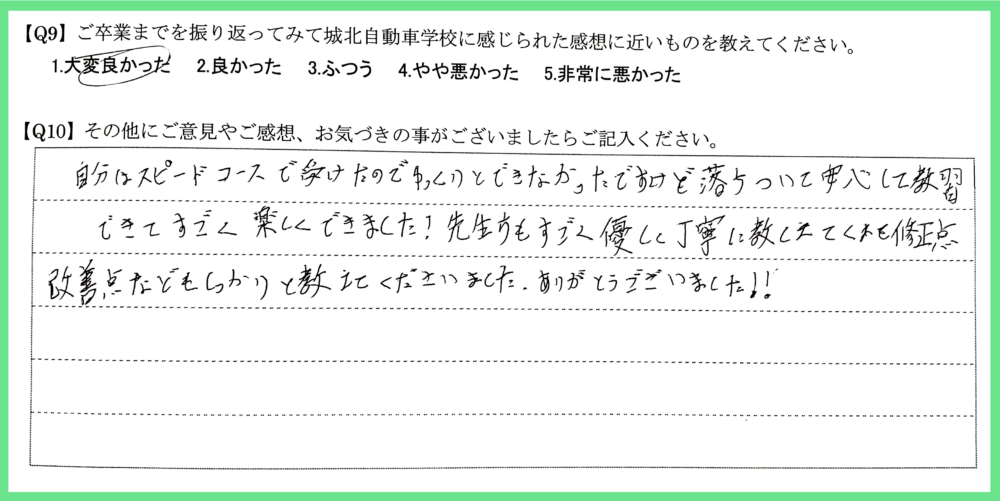 【Q9】ご卒業までを振り返ってみて城北自動車学校に感じられた感想に近いものを教えてください。
1.大変良かった 2.良かった 3.ふつう 4.やや悪かった 5.非常に悪かった
【Q10】その他にご意見やご感想、お気づきの事がございましたらご記入ください。
自分はスピードコースで受けたのでゆっくりとできなかったですけど落ちついて安心して教習
できてすごく楽しくできました!先生方もすごく優しく丁寧に教えてくれて修正点
改善点などもしっかりと教えてくださいました。ありがとうございました!!